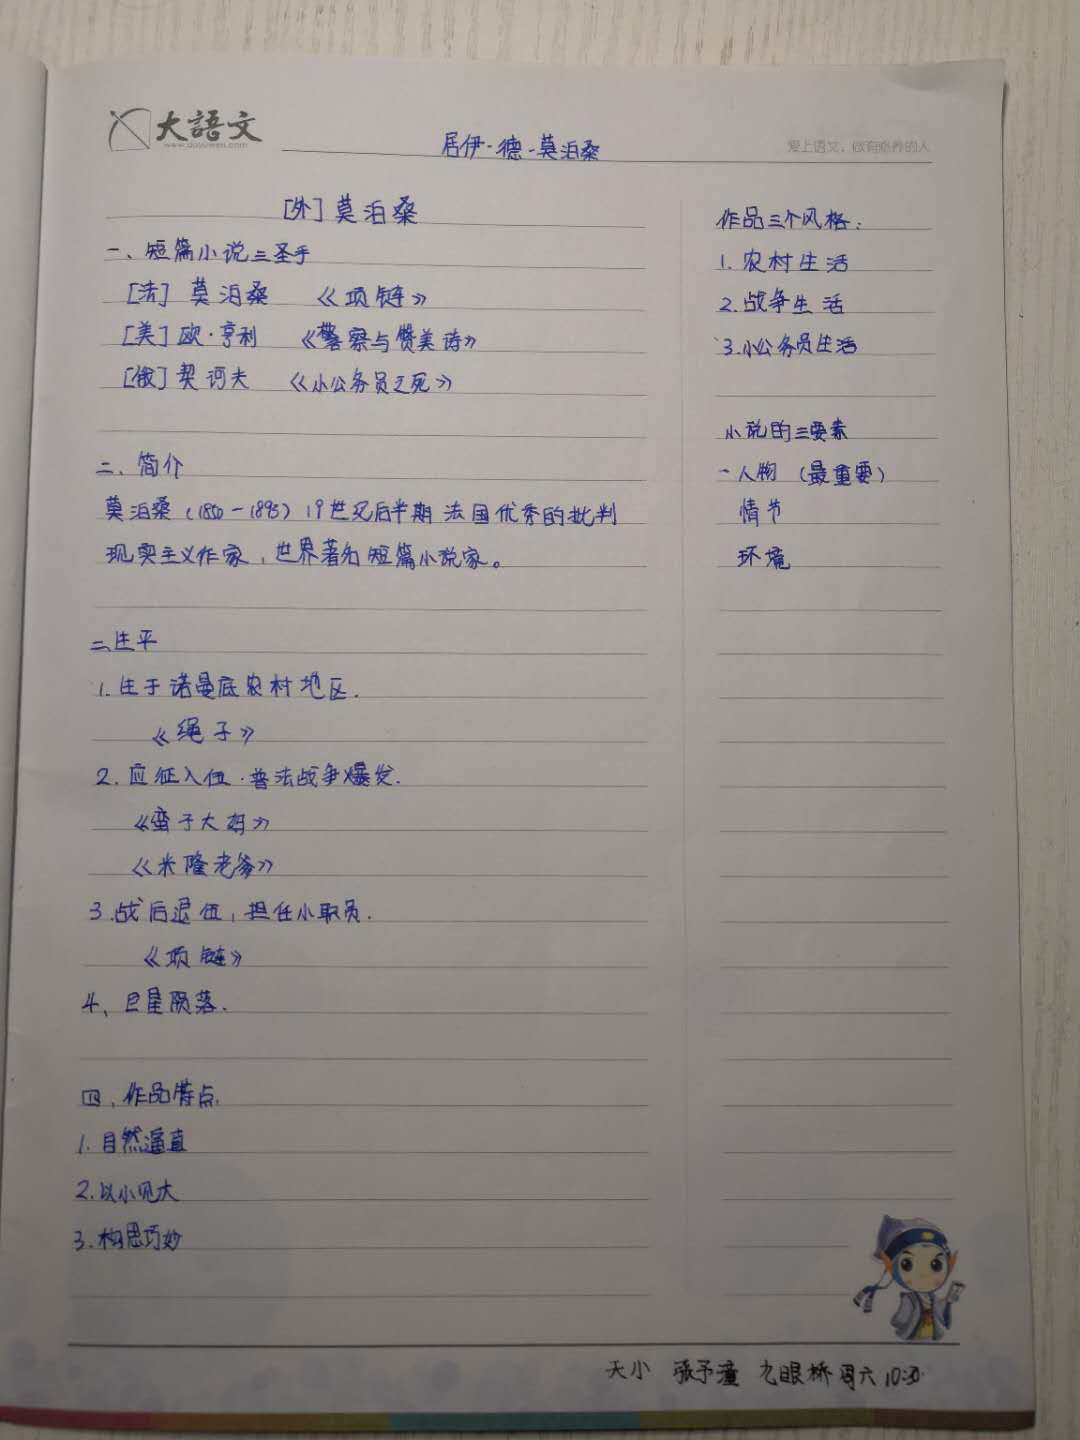 大語文
www.dayuwen.com
居伊·德·莫泊桑
爱上语文，做有修养的人
[外] 莫泊桑
一、短篇小说三圣手
[法] 莫泊桑 《项链》
[美] 欧·亨利 《警察与赞美诗》
[俄] 契诃夫 《小公务员之死》
二、简介
莫泊桑（1850-1893）19世纪后半期法国优秀的批判
现实主义作家，世界著名短篇小说家。
三生平
1.生于诺曼底农村地区.
《绳子》
2.应征入伍.普法战争爆发.
《蛮子大妈》
《米隆老爷》
3.战后退伍，担任小职员.
《项链》
4、巨星陨落.
四、作品特点.
1.自然逼真
2.以小见大
3.构思巧妙
作品三个风格：
1.农村生活
2.战争生活
3.小公务员生活
小说的三要素
-人物（最重要）
情节
环境
天小 張予潼 九眼桥 周六 10:30